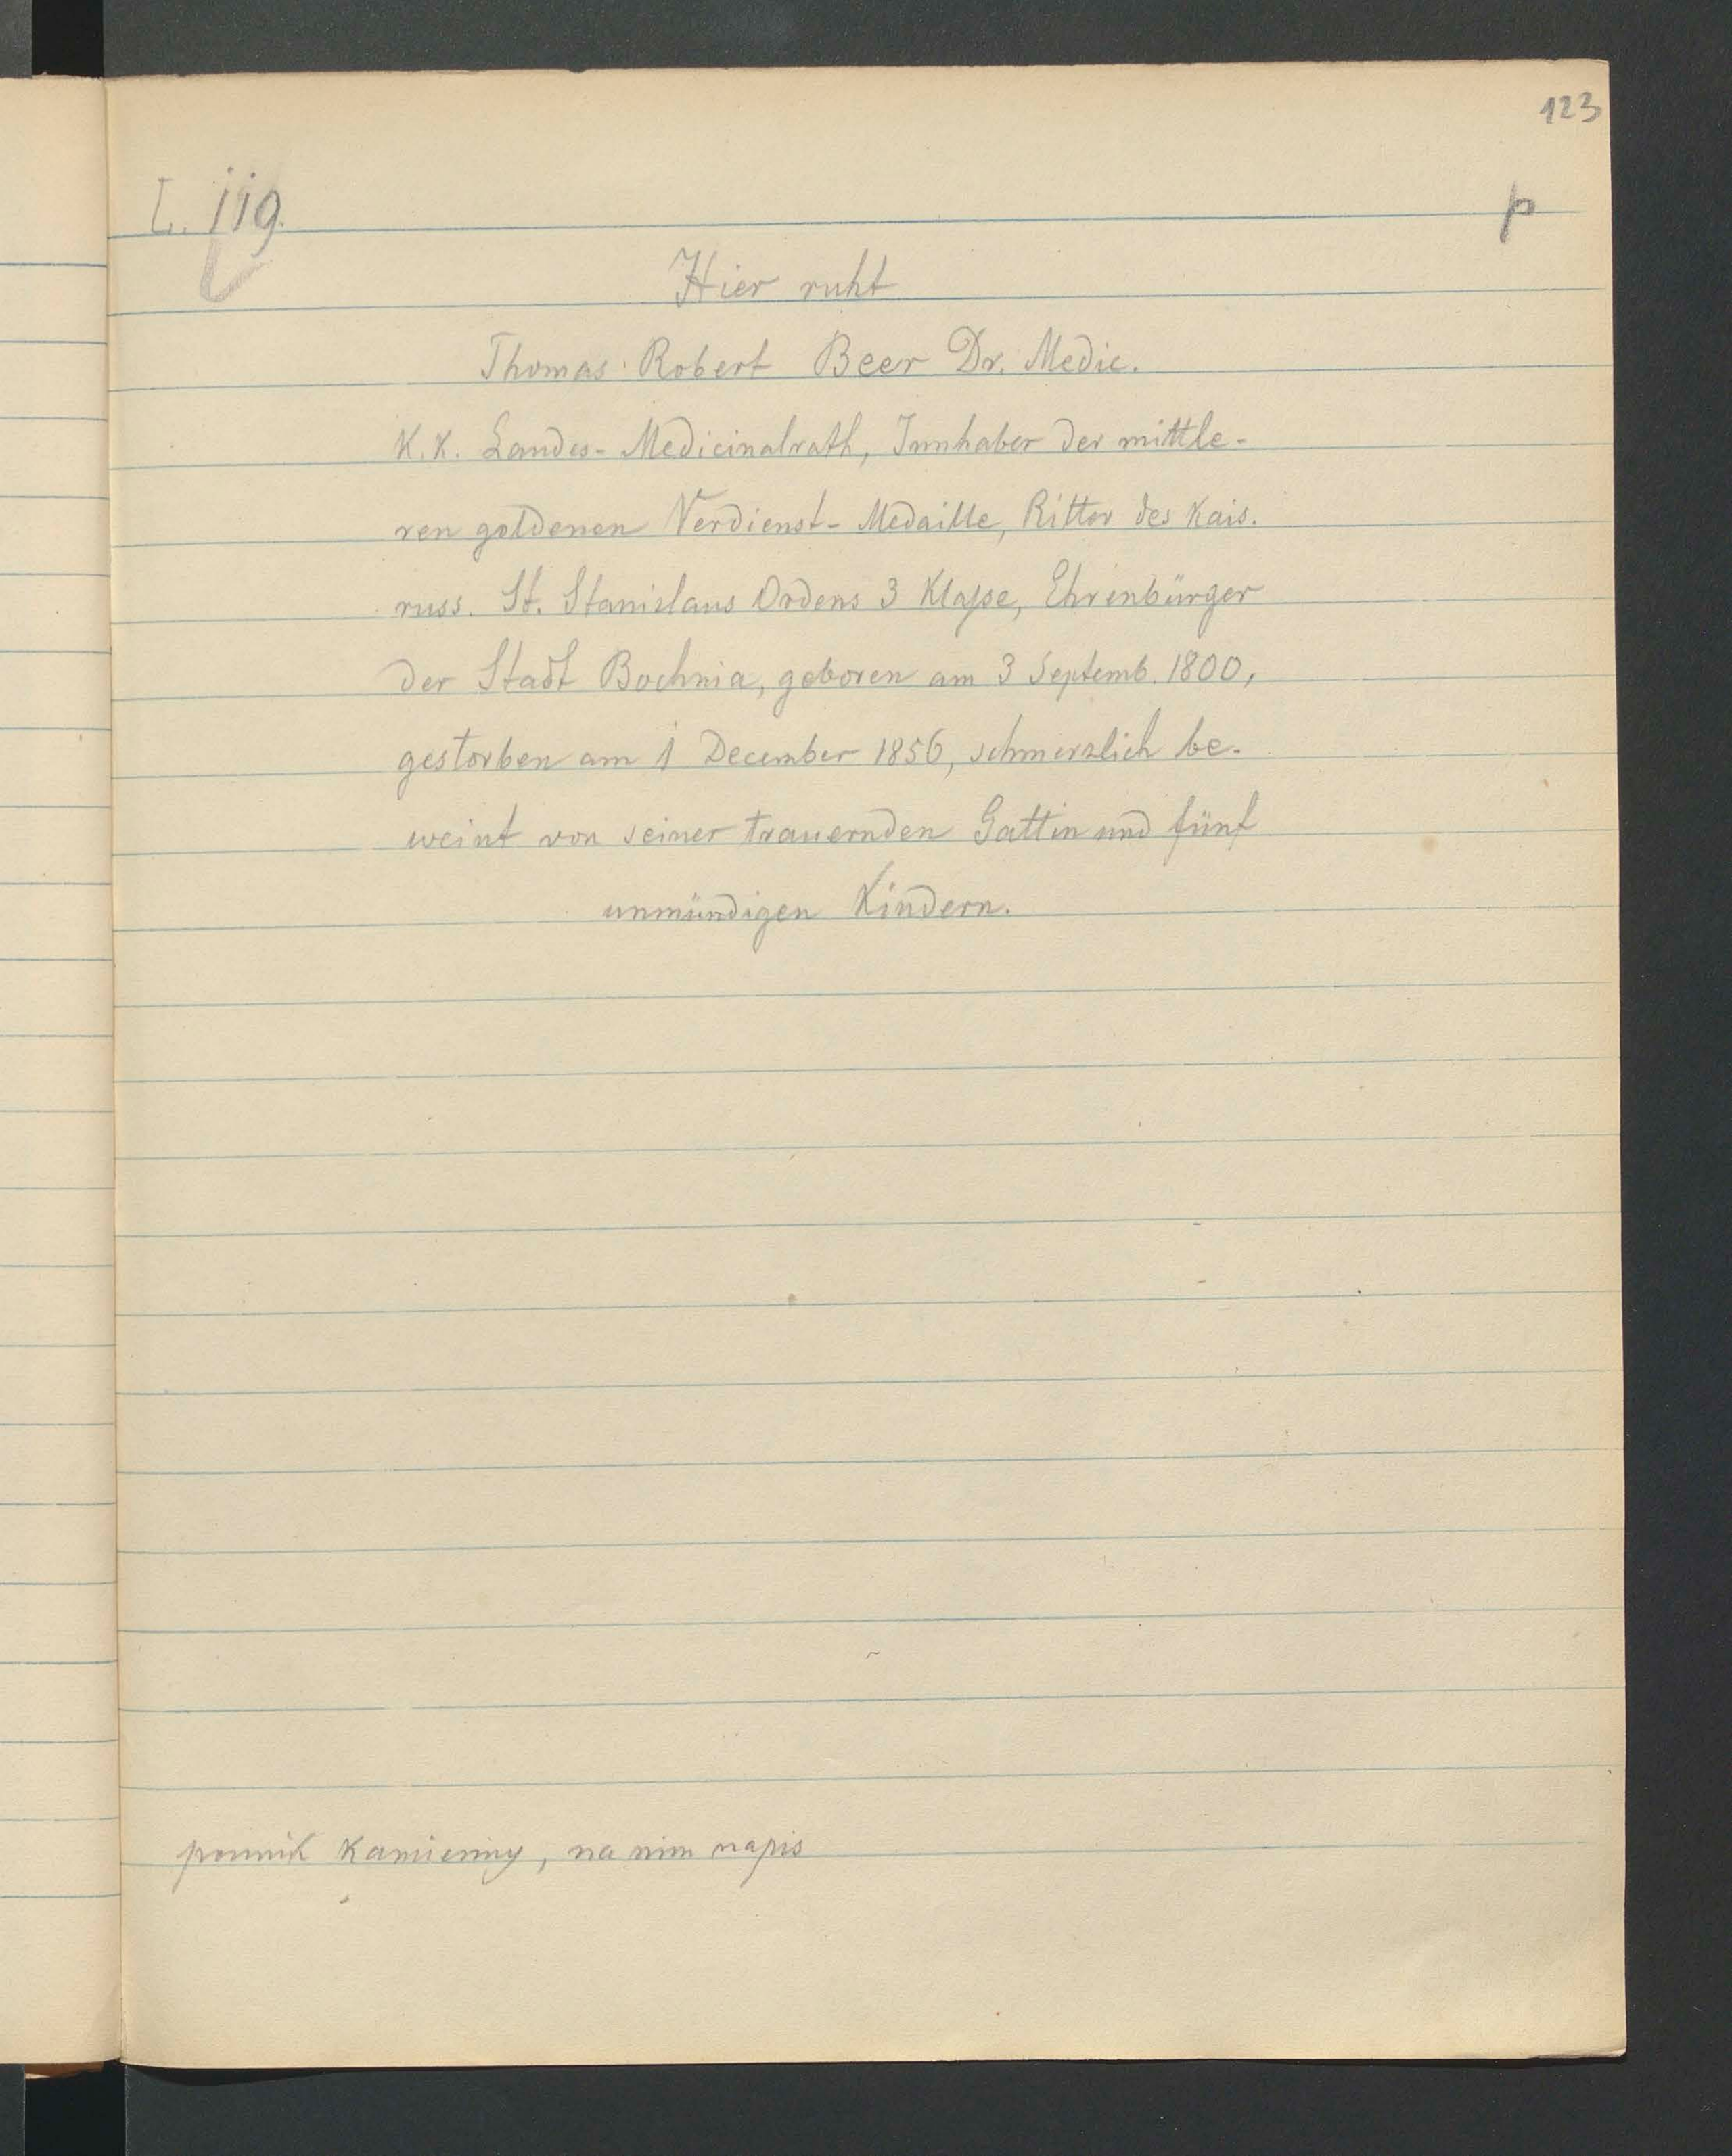 123
L. 119.
p
Hier ruht
Thomas Robert Beer Dr. Medic.
K. K. Landes- Medicinalrath, Innhaber der mittle-
ren goldenen Verdienst- Medaille, Ritter des Kais.
russ. St. Stanislaus Ordens 3 Klaſse, Ehrenbürger
der Stadt Bochnia, geboren am 3 Septemb. 1800,
gestorben am 1 December 1856, schmerzlich be-
weint von seiner trauernden Gattin und fünf
unmündigen Kindern.
pomnik kamienny, na nim napis